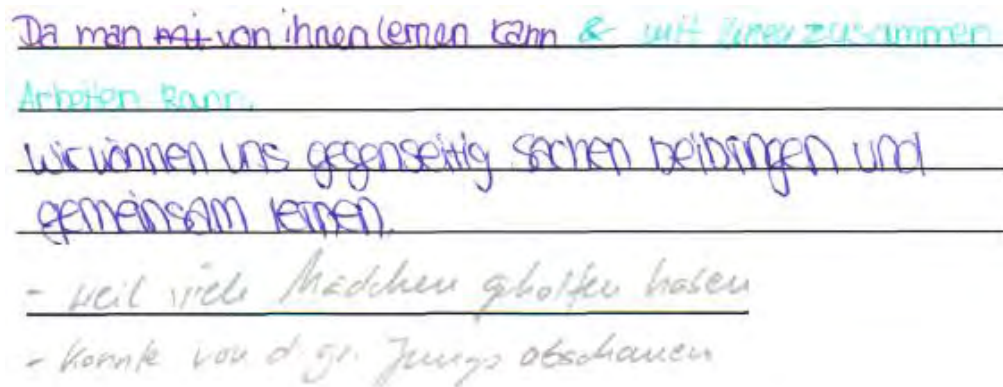 Da man mit von ihnen lernen kann & mit ihnen zusammen
Arbeiten kann.
Wir können uns gegenseitig sachen beibringen und
gemeinsam lernen.
- weil viele Mädchen geholfen haben
- konnte von d. gr. Jungs abschauen